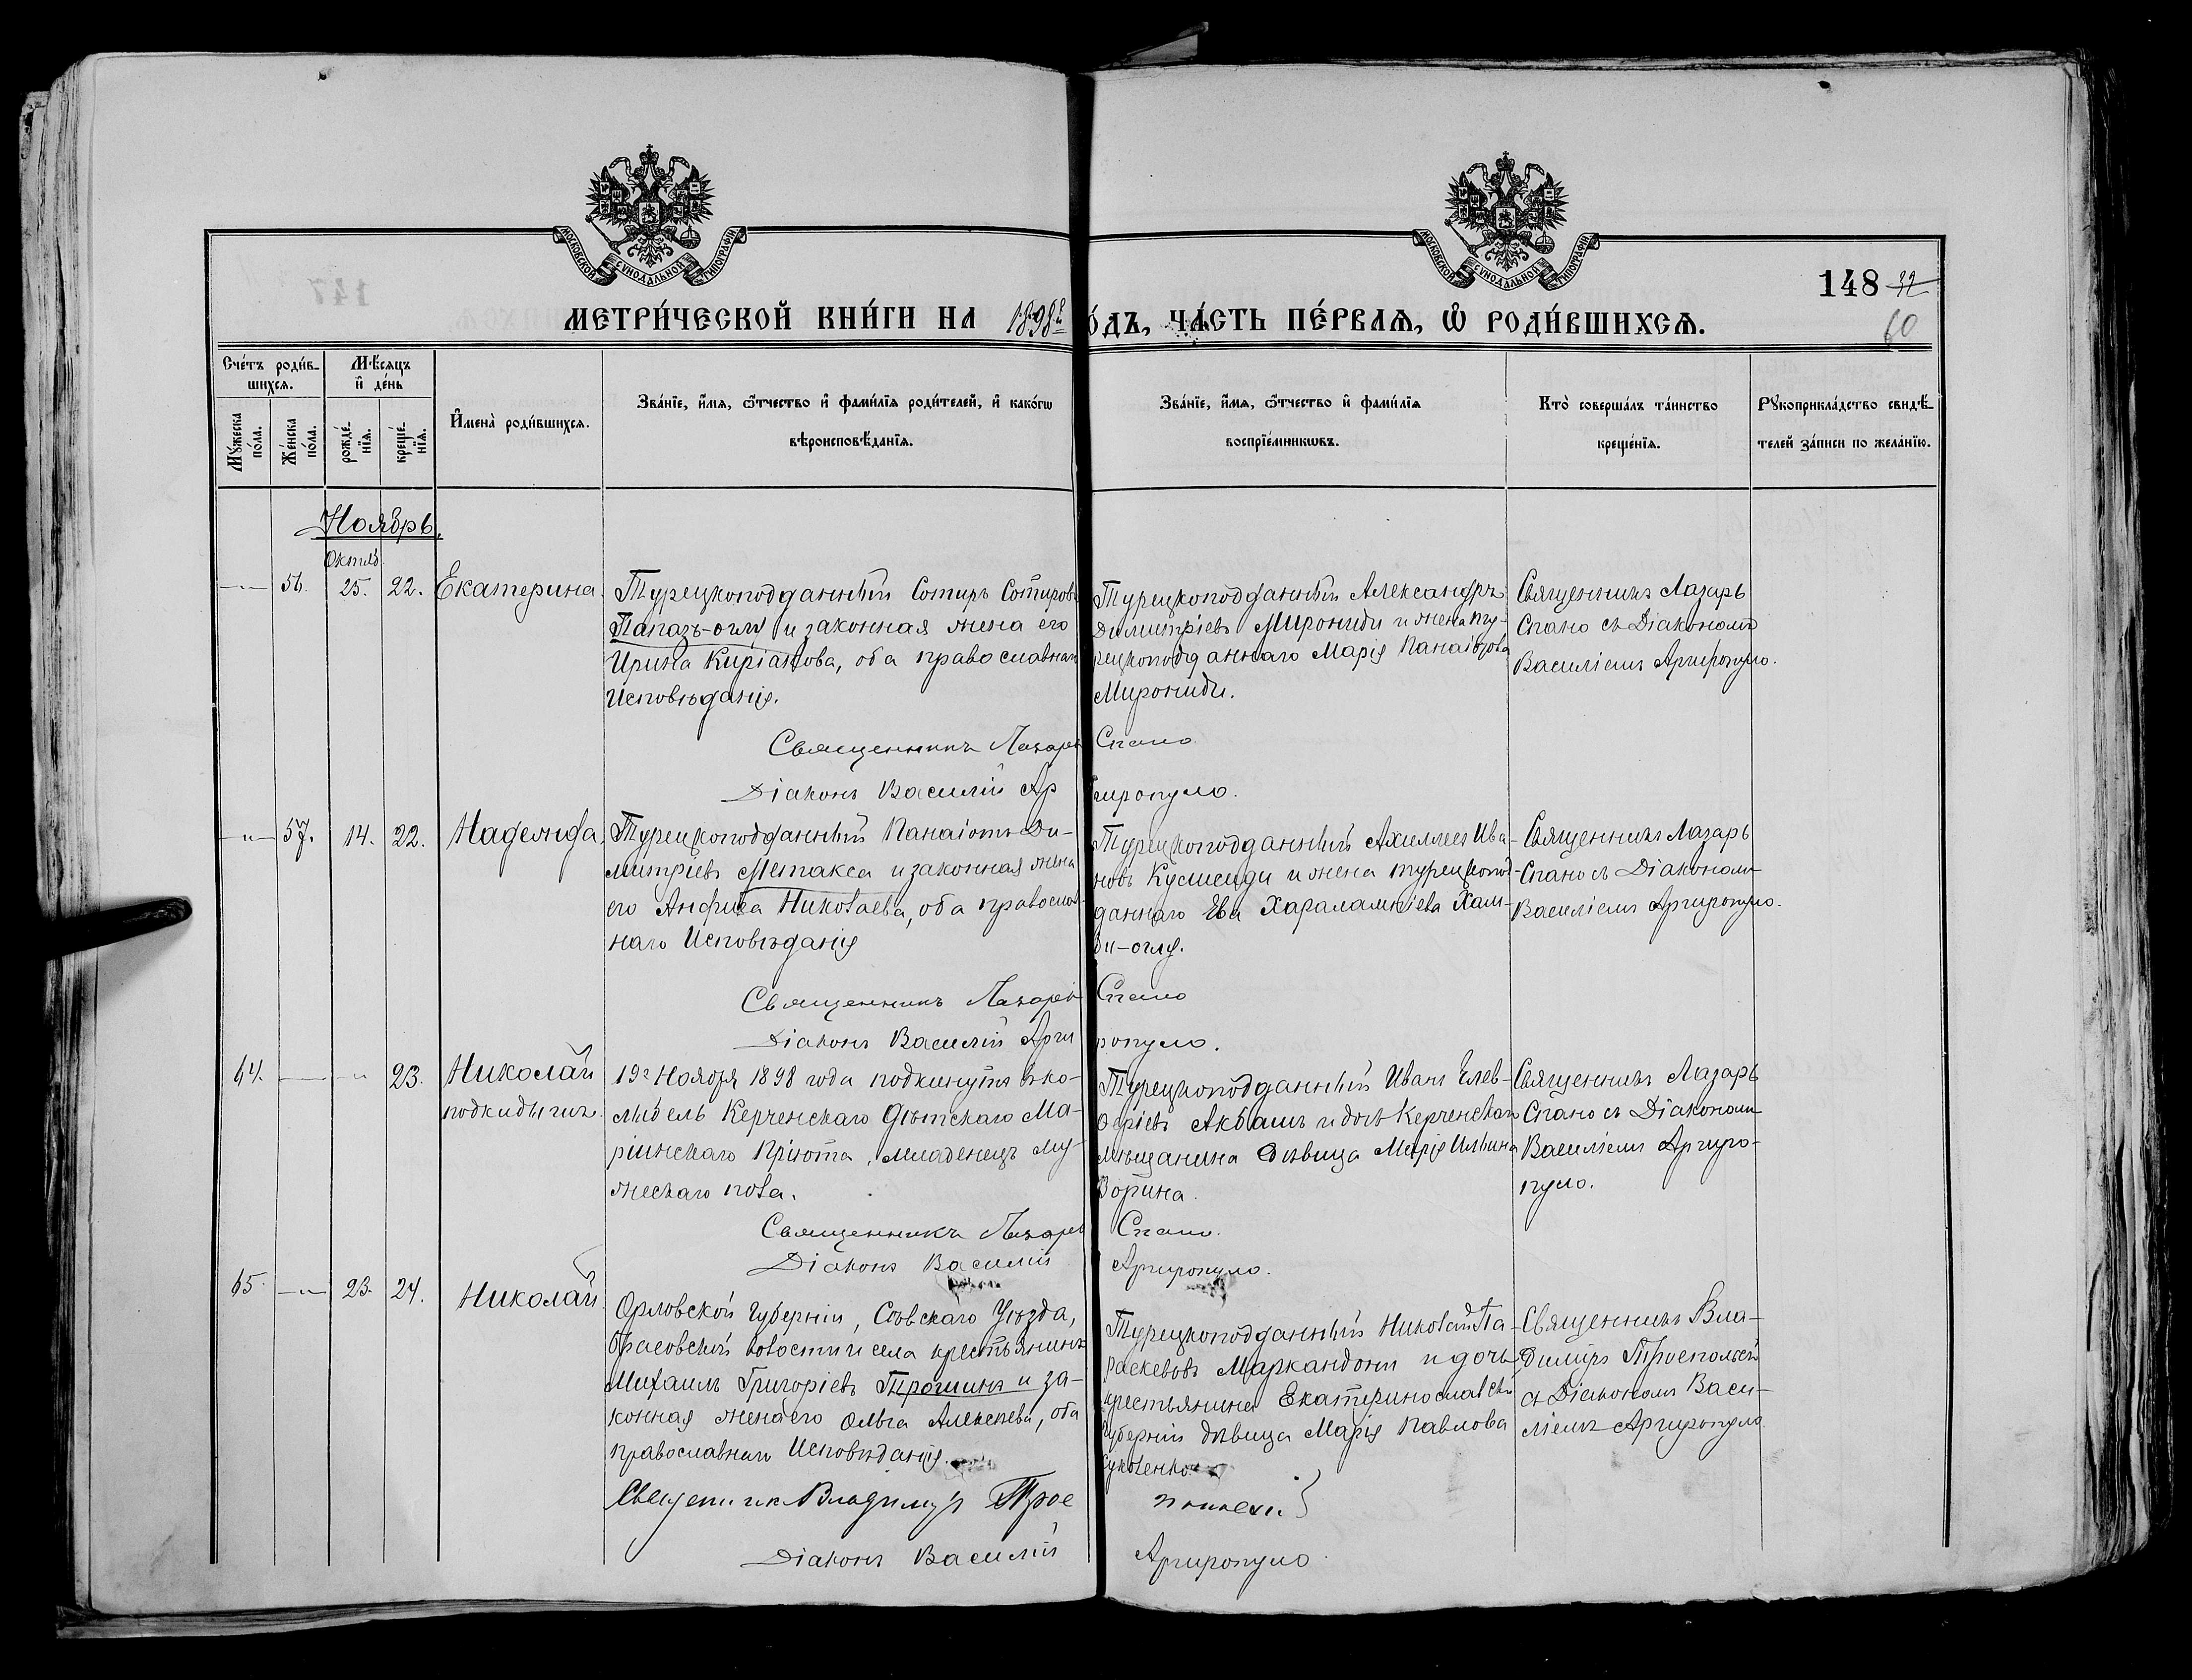 МОСКОВСКОЙ СѴНОДАЛЬНОЙ ТИПОГРАФІИ
МОСКОВСКОЙ СѴНОДАЛЬНОЙ ТИПОГРАФІИ
148 32
60
МЕТРИ́ЧЕСКОЙ КНИ́ГИ НА 1898 г
О́ДЪ, ЧА́СТЬ ПЕ́РВАѦ, Ѡ҆ РОДИ́ВШИХСѦ.
Сче́тъ роди́в-
шихсѧ.
Мѣ́сѧцъ
и҆ де́нь
Мꙋ́жеска
по́ла.
Же́нска
по́ла.
рожде́-
нїѧ.
креще́-
нїѧ.
И҆мена̀ роди́вшихсѧ.
Зва́нїе, и҆́мѧ, ѻ҆́тчество и҆ фами́лїѧ роди́телей, и҆ како́гѡ
вѣроисповѣ́данїѧ.
Зва́нїе, и҆́мѧ, ѻ҆́тчество и҆ фами́лїѧ
воспрїе́мникѡвъ.
Кто̀ соверша́лъ та́инство
креще́нїѧ.
Рꙋкоприкла́дство свидѣ́-
телей за́писи по жела́нїю.
Ноябрь.
Октяб.
— 56. 25. 22. Екатерина
Турецкоподданный Сотиръ Сотировъ
Папазъ-оглу и законная жена его
Ирина Киріакова, оба православнаго
Исповѣданія.
Турецкоподданный Александръ
Димитріевъ Мирониди и жена ту-
рецкоподданнаго Марія Панаіотова
Мирониди.
Священникъ Лазарь
Спано съ Діакономъ
Василіемъ Аргиропуло.
Священникъ Лазарь Спано
Діаконъ Василій Аргиропуло.
—"— 57. 14. 22. Надежда
Турецкоподданный Панаіотъ Ди-
митріевъ Метакса и законная жена
его Анфиса Николаева, оба православ-
наго Исповѣданія
Турецкоподданный Ахиллес Ива-
новъ Кусисиди и жена турецкопод-
даннаго Ева Харалампіева Хам-
ди-оглу.
Священникъ Лазарь
Спано съ Діакономъ
Василіемъ Аргиропуло.
Священникъ Лазарь Спано
Діаконъ Василій Аргиропуло.
64. — " 23. Николай
подкидышъ.
19го Ноября 1898 года подкинутъ въ ко-
лыбель Керченскаго Дѣтскаго Ма-
ріинскаго Пріюта, младенецъ му-
жескаго пола.
Турецкоподданный Иванъ Елев-
ѳеріевъ Акбашъ и дочь Керченскаго
мѣщанина дѣвица Марія Ильина
Зорина.
Священникъ Лазарь
Спано съ Діакономъ
Василіемъ Аргиро-
пуло.
Священникъ Лазарь Спано.
Діаконъ Василій Аргиропуло.
65. —"— 23. 24. Николай
Орловской Губерніи, Сѣвскаго Уѣзда,
Брасовской волости и села крестьянинъ
Михаилъ Григоріевъ Трошинъ и за-
конная жена его Ольга Алексѣева, оба
православнаго Исповѣданія.
Турецкоподданный Николай Па-
раскевовъ Маркандони и дочь
крестьянина Екатеринославской
Губерніи дѣвица Марія Павлова
Священникъ Вла-
димиръ Троепольскій
съ Діакономъ Васи-
ліемъ Аргиропуло.
Священникъ Владимиръ Троепольскій
Діаконъ Василій Аргиропуло